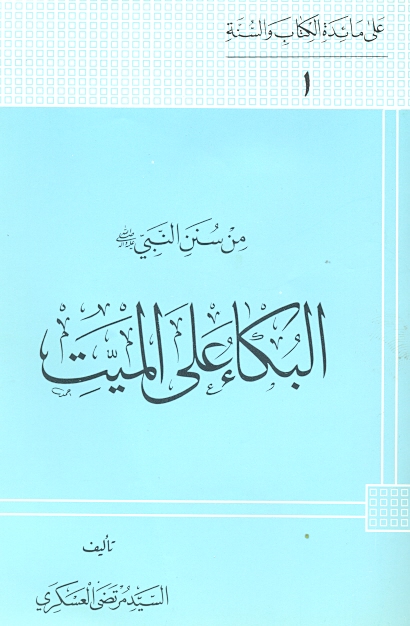 عَلىٰ مَائِدَةِ الْكِتَابِ وَالسُّنَّةِ
١
مِنْ سُنَنِ النَّبِيِّ ﷺ
البُكَاءُ عَلَى المَيِّتِ
تأليف
السَّيِّد مُرتَضَى العَسْكَرِي